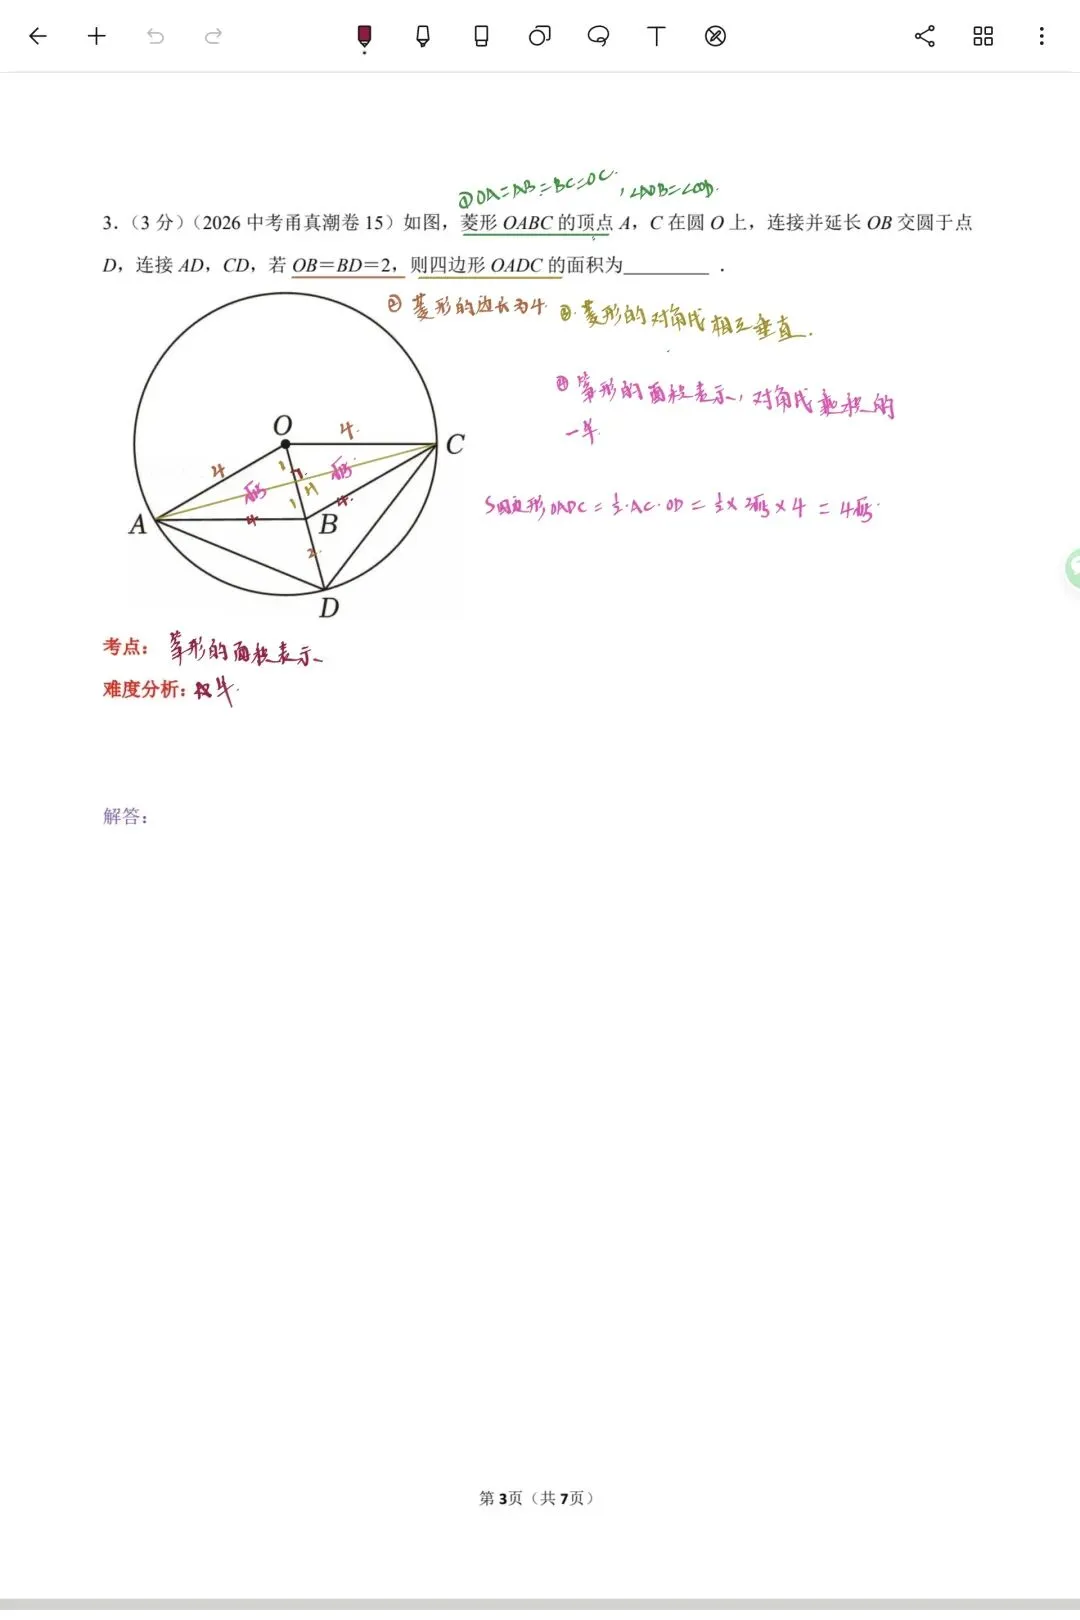 ①OA=AB=BC=OC.,∠AOB=∠COB.
3.（3 分）（2026 中考甬真潮卷 15）如图，菱形 OABC 的顶点 A，C 在圆 O 上，连接并延长 OB 交圆于点
D，连接 AD，CD，若 OB＝BD＝2，则四边形 OADC 的面积为________ ．
② 菱形的边长为4.
③.菱形的对角线相互垂直.
④ 筝形的面积表示,对角线乘积的
一半.
O
4.
C
4
1
√15
√15
H
1
4
4.
A
B
2
D
S四边形OADC = ½·AC·OD = ½×2√15×4 = 4√15.
考点：筝形的面积表示
难度分析：
解答：
第 3页（共 7页）